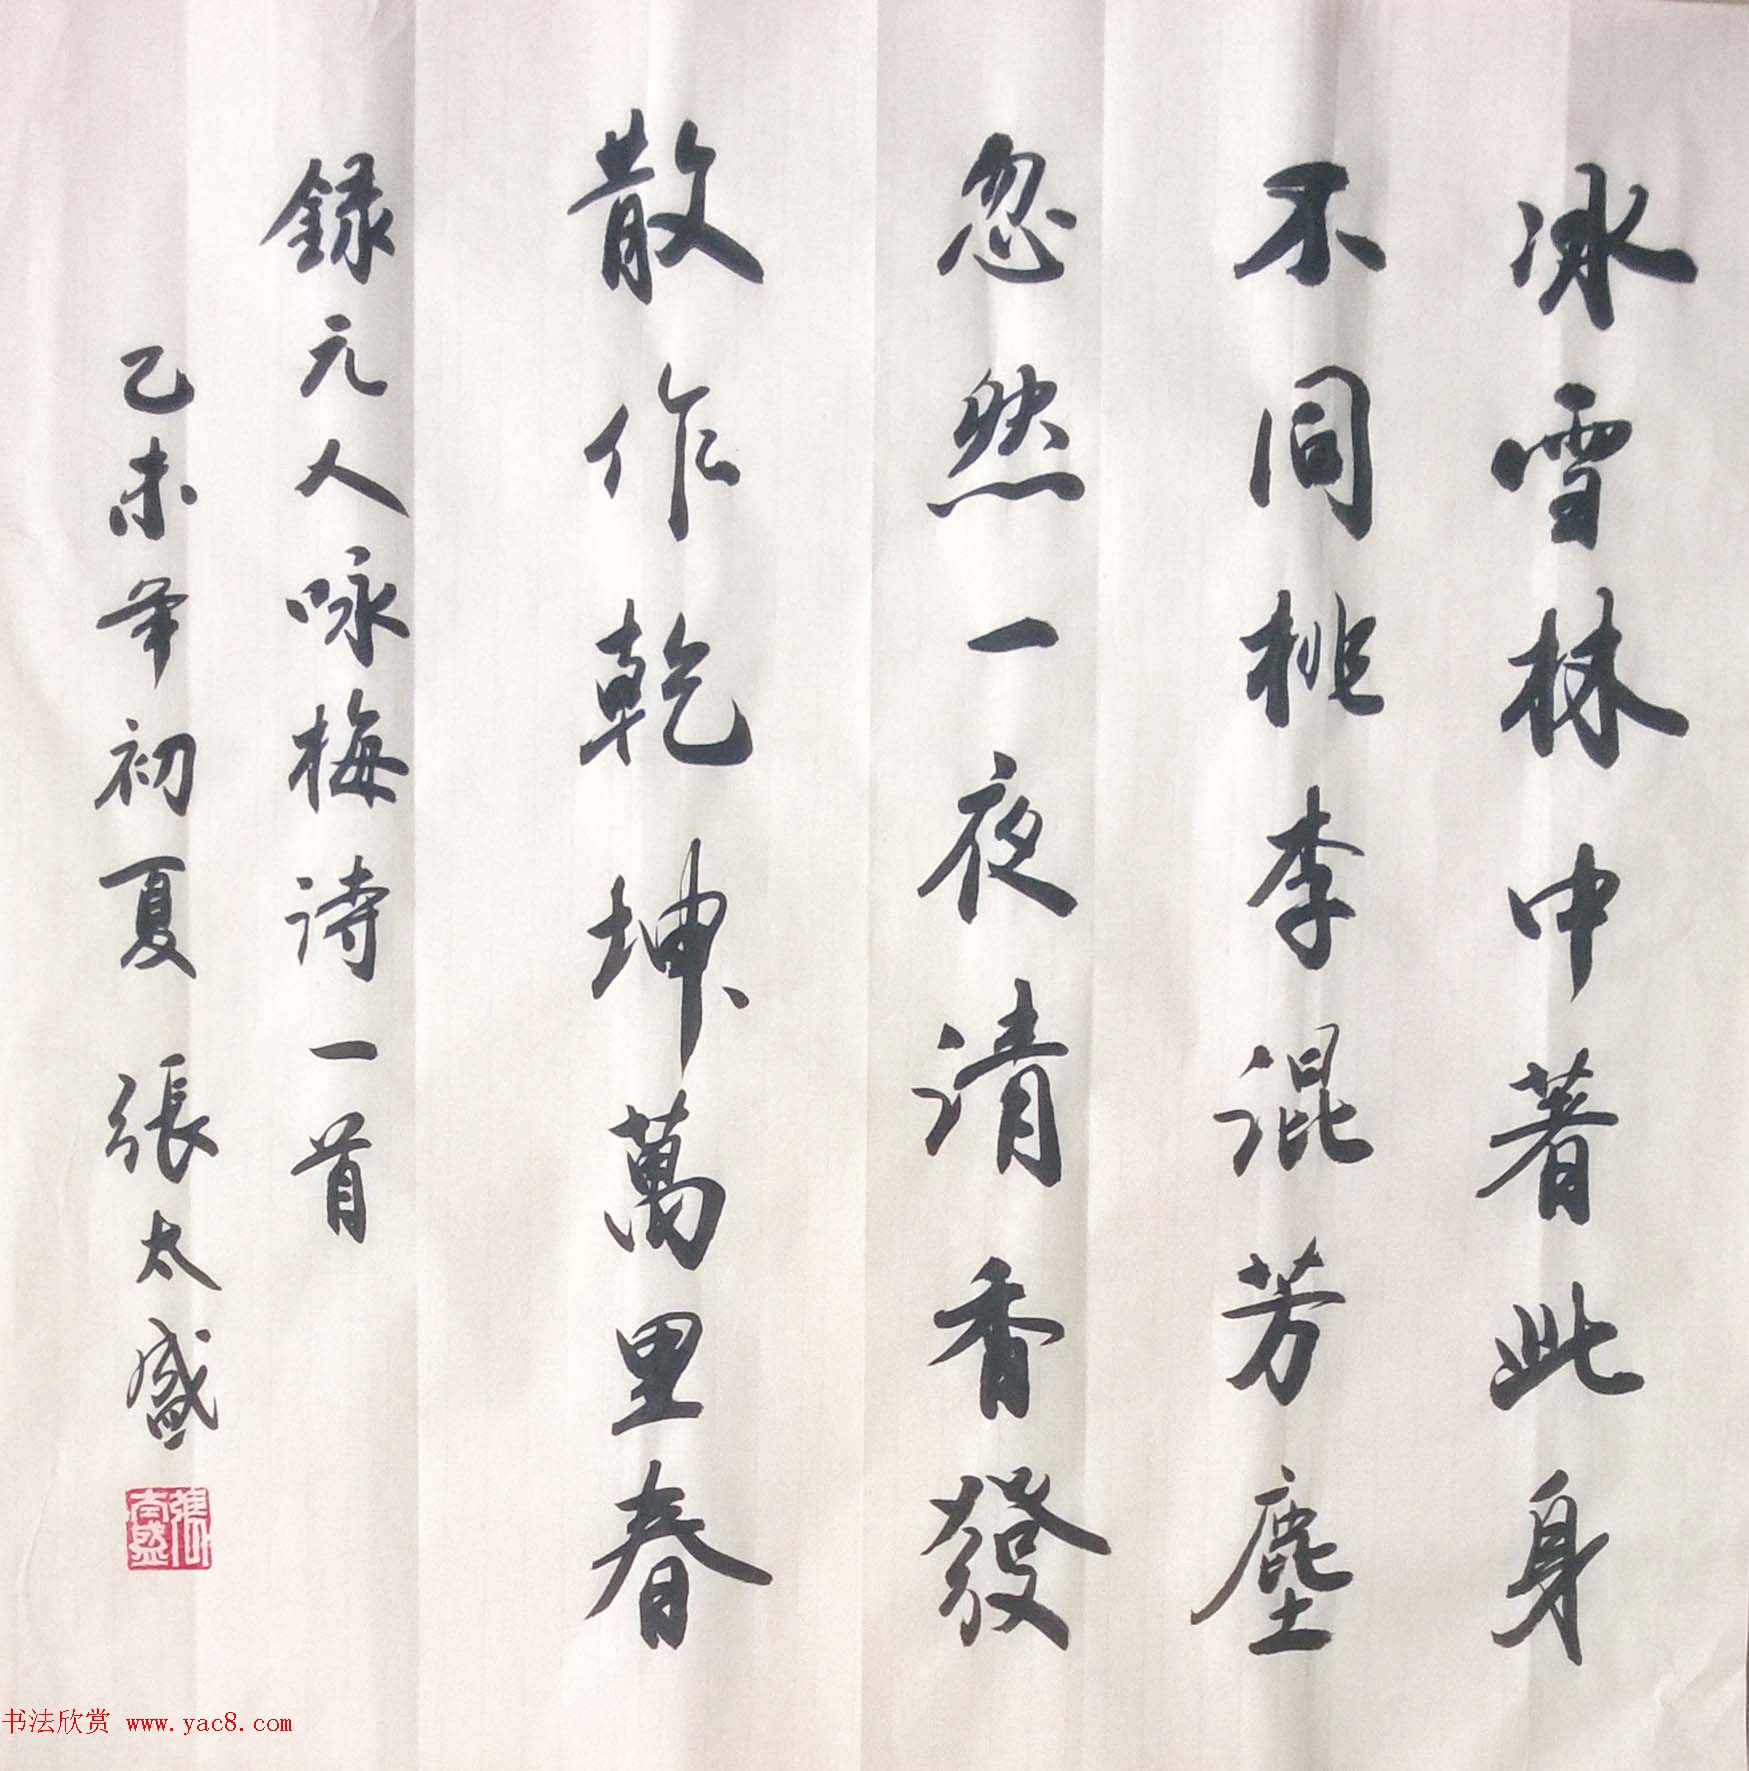 冰雪林中著此身
不同桃李混芳塵
忽然一夜清香發
散作乾坤萬里春
録元人咏梅詩一首
乙未年初夏 張太盛
張太盛
书法欣赏 www.yac8.com